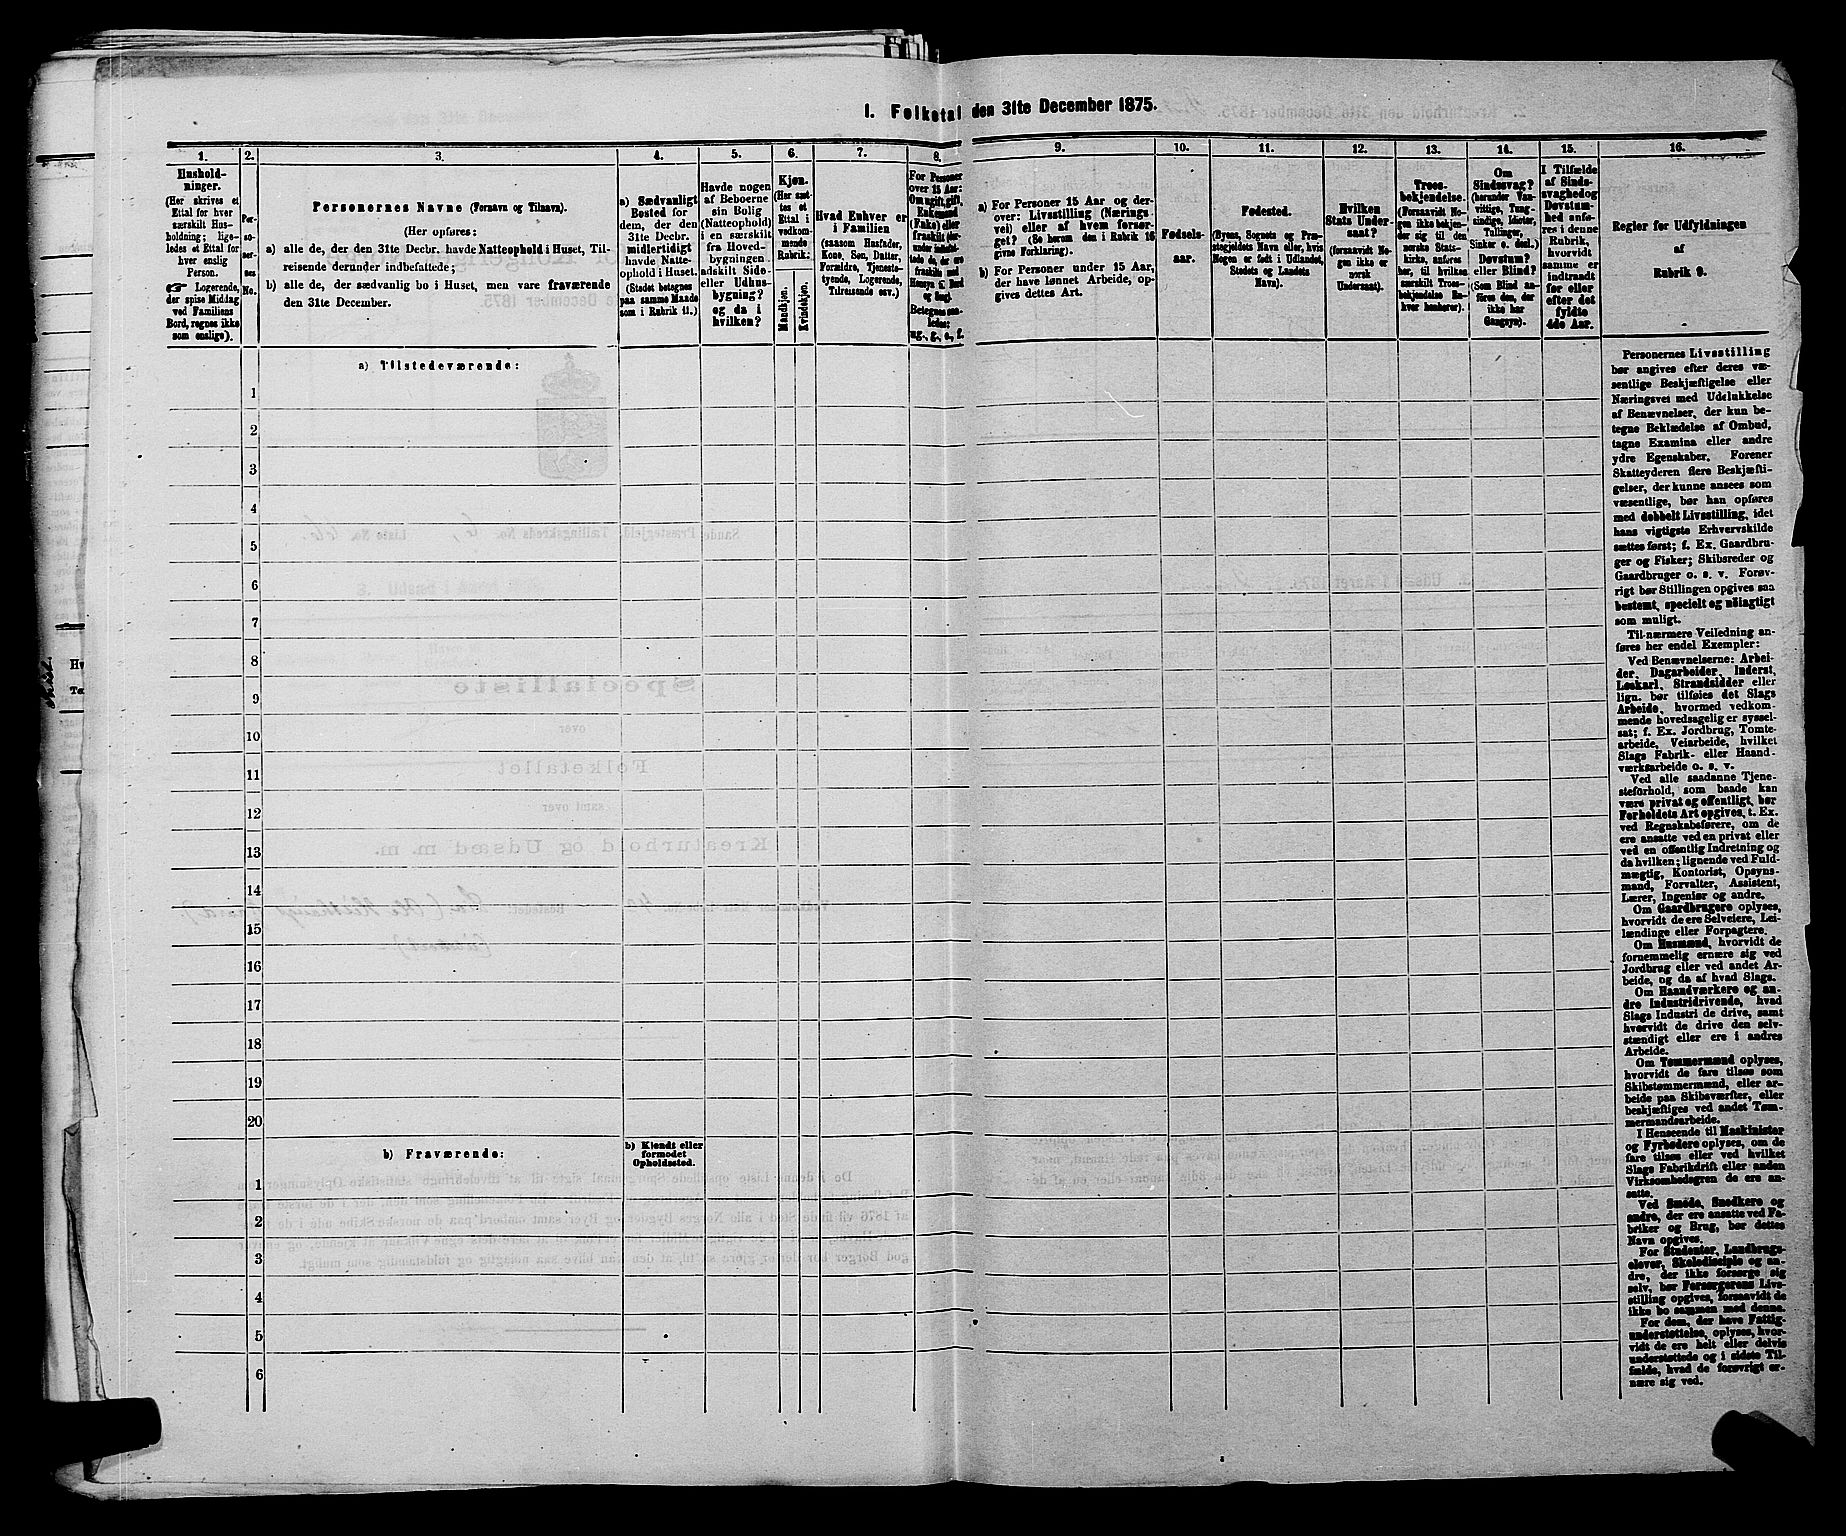 I. Folketal den 31te December 1875.
1.
Hushold-
ninger.
(Her skrives et
Ettal for hver
særskilt Hus-
holdning; lige-
ledes et Ettal for
hver enslig
Person.
☞ Logerende,
der spise Middag
ved Familiens
Bord, regnes ikke
som enslige).
2.
Per-
so-
ner-
nes
No.
3.
Personernes Navne (Fornavn og Tilnavn).
(Her opføres:
a) alle de, der den 31te Decbr. havde Natteophold i Huset, Til-
reisende derunder indbefattede;
b) alle de, der sædvanlig bo i Huset, men vare fraværende
den 31te December.
4.
a) Sædvanligt
Bosted for
dem, der den
31te Decbr.
midlertidigt
havde Natte-
ophold i Huset.
(Stedet betegnes
paa samme Maade
som i Rubrik 11.)
5.
Havde nogen
af Beboerne
sin Bolig
(Natteophold)
i en særskilt
fra Hoved-
bygningen
adskilt Side-
eller Udhus-
bygning?
og da i
hvilken?
6.
Kjøn.
(Her sæt-
tes et
Ettal i
vedkom-
mende
Rubrik.)
Mandkjøn.
Kvindekjøn.
7.
Hvad Enhver er
i Familien
(saasom Husfader,
Kone, Søn, Datter,
Forældre, Tjeneste-
tyende, Logerende,
Tilreisende osv.)
8.
For Personer
over 15 Aar:
Om ugift, gift,
Enkemand
(Enke) eller
fraskilt
Betegnes saa-
ledes:
ug., g., e., f.
9.
a) For Personer 15 Aar og der-
over: Livsstilling (Nærings-
vei) eller af hvem forsør-
get? (Se herom den i Rubrik 16
givne Forklaring).
b) For Personer under 15 Aar,
der have lønnet Arbeide, op-
gives dettes Art.
10.
Fødsels-
aar.
11.
Fødested.
(Byens, Sognets og Præ-
stegjeldets Navn eller, hvis
Nogen er født i Udlandet,
Stedets og Landets
Navn).
12.
Hvilken
Stats Under-
saat?
(forsaavidt No-
gen ikke er
norsk
Undersaat).
13.
Troes-
bekjendelse.
(Forsaavidt No-
gen ikke bekjen-
der sig til den
norske Stats-
kirke, anføres
her, til hvilken
særskilt Troes-
bekjendelse En-
hver henhører).
14.
Om
Sindssvag?
(herunder Van-
vittige, Tung-
sindige, Idioter,
Tullinger,
Sinker o. desl.)
Døvstum?
eller Blind?
(Som Blind an-
føres den, der
ikke har
Gangsyn).
15.
I Tilfælde
af Sinds-
svaghed og
Døvstum-
hed anfø-
res i denne
Rubrik,
hvorvidt
samme er
indtraadt
før eller
efter det
fyldte
4de Aar.
16.
Regler for Udfyldningen
af
Rubrik 9.
a) Tilstedeværende:
1
2
3
4
5
6
7
8
9
10
11
12
13
14
15
16
17
18
19
20
b) Fraværende:
b) Kjendt eller
formodet
Opholdssted.
1
2
3
4
5
6
Personernes Livsstilling
bør angives efter deres væ-
sentlige Beskjæftigelse eller
Næringsvei med Udelukkelse
af Benævnelser, der kun be-
tegne Beklædelse af Ombud,
tagne Examina eller andre
ydre Egenskaber. Forener
Skatteyderen flere Beskjæfti-
gelser, der kunne ansees som
væsentlige, bør han opføres
med dobbelt Livsstilling, idet
hans vigtigste Erhvervskilde
sættes først; f. Ex. Gaardbru-
ger og Fisker; Skibsreder og
Gaardbruger o. s. v. Forøv-
rigt bør Stillingen opgives saa
bestemt, specielt og nøiagtigt
som muligt.
Til nærmere Veiledning an-
føres her endel Exempler:
Ved Benævnelserne: Arbei-
der, Dagarbeider, Inderst,
Løskarl, Strandsidder eller
lign. bør tilføies det Slags
Arbeide, hvormed vedkom-
mende hovedsagelig er syssel-
sat; f. Ex. Jordbrug, Tomte-
arbeide, Veiarbeide, hvilket
Slags Fabrik- eller Haand-
værksarbeide o. s. v.
Ved alle saadanne Tjene-
steforhold, som baade kan
være privat og offentligt, bør
Forholdets Art opgives, t. Ex.
ved Regnskabsførere, om de
ere ansatte ved en privat eller
ved en offentlig Indretning og
da hvilken; lignende ved Fuld-
mægtig, Kontorist, Opsyns-
mand, Forvalter, Assistent,
Lærer, Ingeniør og andre.
Om Gaardbrugere oplyses,
hvorvidt de ere Selveiere, Lei-
lændinge eller Forpagtere.
Om Husmænd, hvorvidt de
fornemmelig ernære sig ved
Jordbrug eller ved andet Ar-
beide, og da af hvad Slags.
Om Haandværkere og an-
dre Industridrivende, hvad
Slags Industri de drive, samt
hvorvidt de drive den selv-
stændigt eller ere i andres
Arbeide.
Om Tømmermænd oplyses,
hvorvidt de fare tilsøs som
Skibstømmermænd, eller ar-
beide paa Skibsværfter, eller
beskjæftiges ved andet Tøm-
mermandsarbeide.
I Henseende til Maskinister
og Fyrbødere oplyses, om de
fare tilsøs eller ved hvilket
Slags Fabrikdrift eller anden
Virksomhedsgren de ere an-
satte.
Ved Smede, Snedkere og
andre, der ere ansatte ved Fa-
briker og Brug, bør dettes
Navn opgives.
For Studenter, Landbrugs-
elever, Skoledisciple og an-
dre, der ikke forsørge sig
selv, bør Forsørgerens Livs-
stilling opgives, forsaavidt de
ikke bo sammen med denne.
For dem, der have Fattig-
understøttelse, oplyses, hvor-
vidt de ere helt eller delvis
understøttede og i sidste Til-
fælde, hvad de forøvrigt er-
nære sig ved.